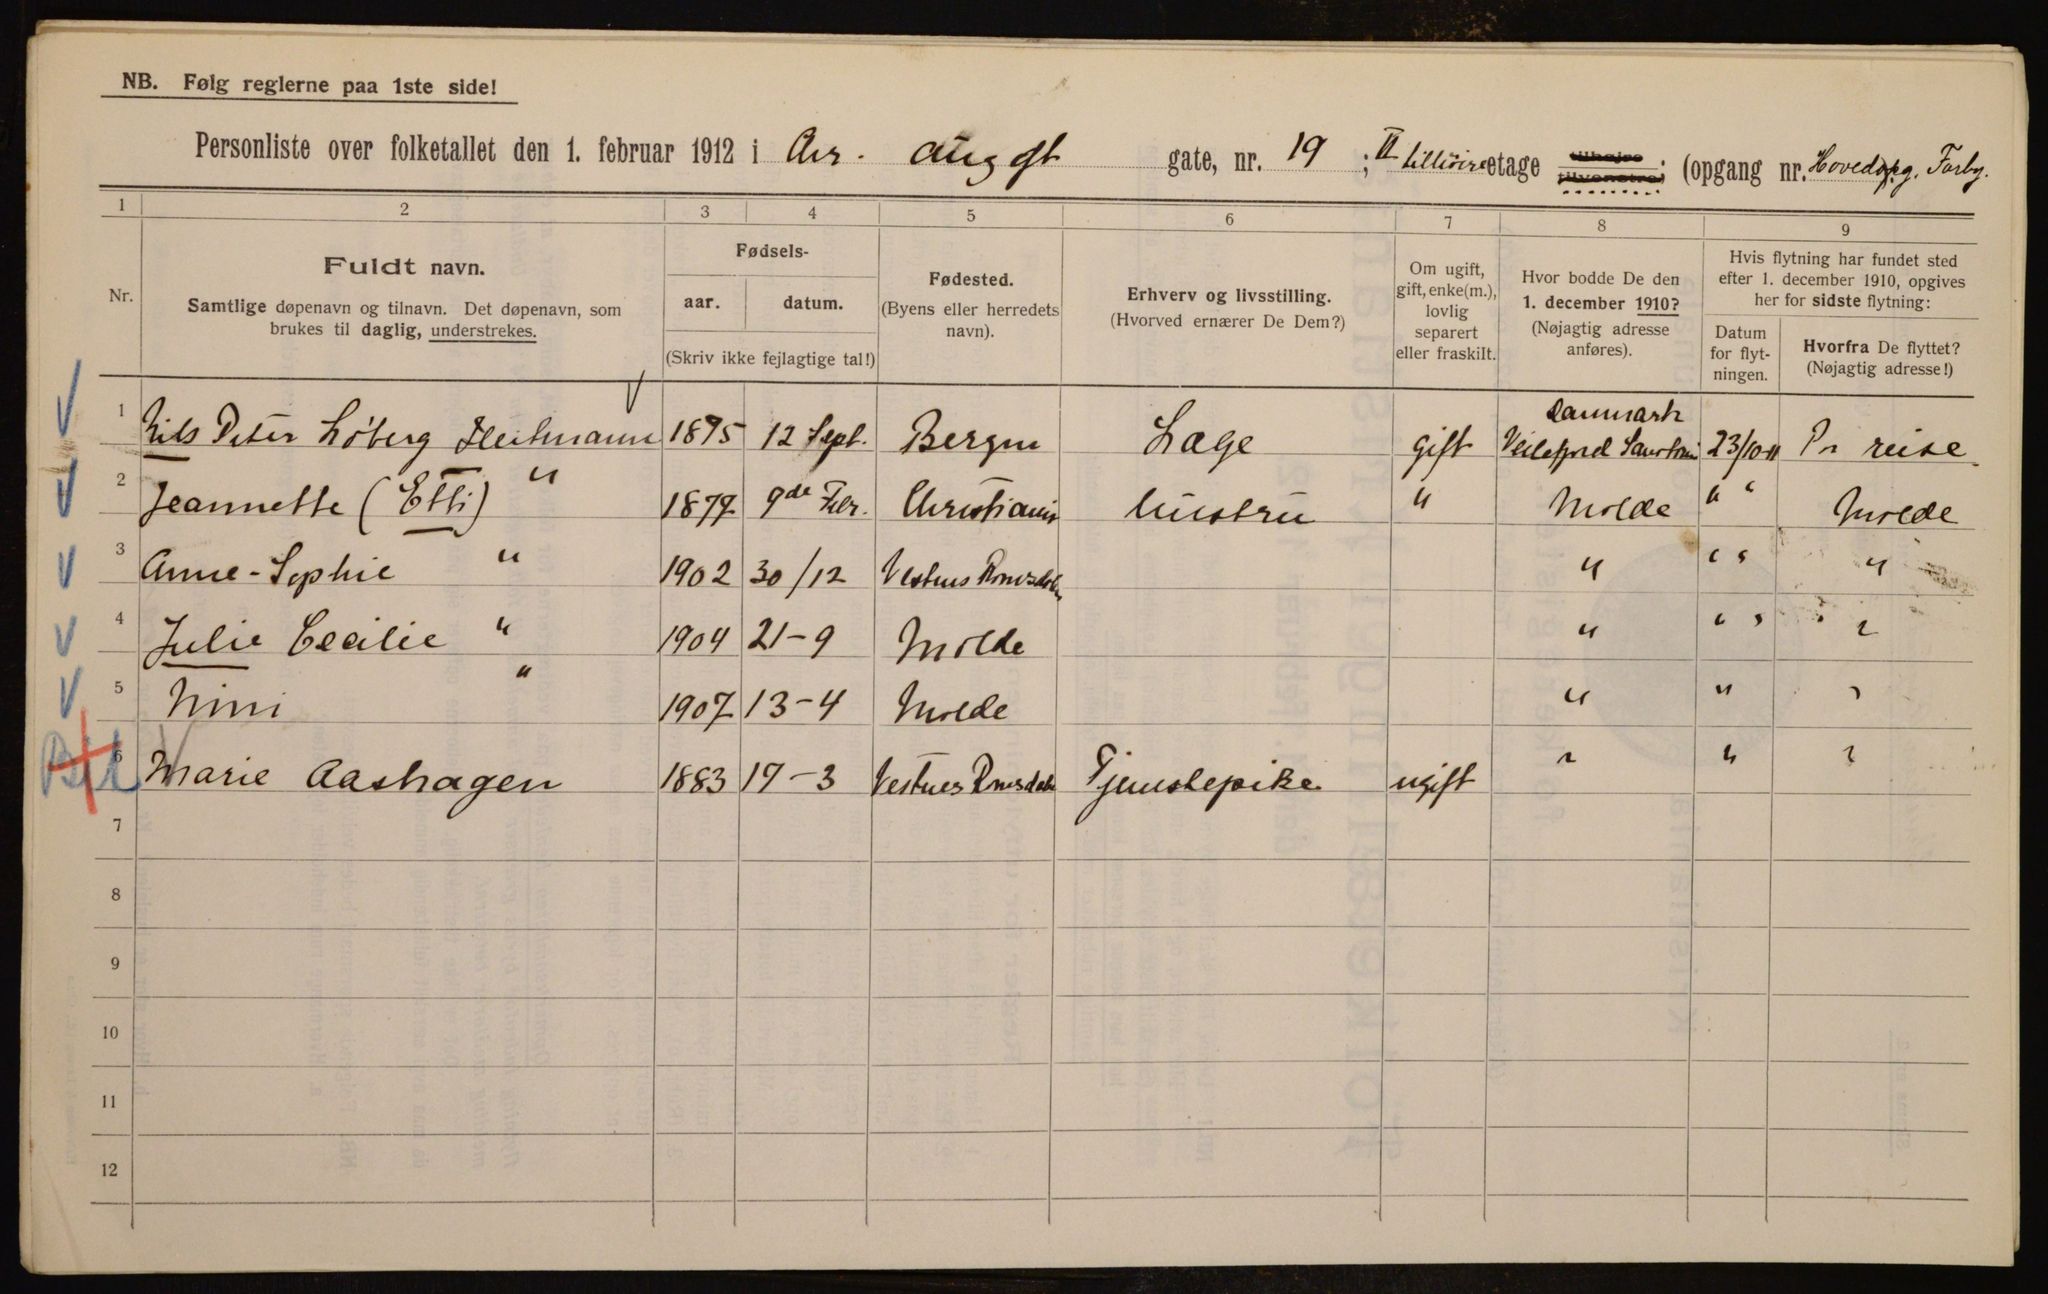 NB. Følg reglerne paa 1ste side!
Personliste over folketallet den 1. februar 1912 i Chr. Aug gt gate, nr. 19 ; II tilhøire etage tilhøjre tilvenstre; (opgang nr. Hovedopg. Forby.
1 2 3 4 5 6 7 8 9
Nr.
Fuldt navn.
Samtlige døpenavn og tilnavn. Det døpenavn, som
brukes til daglig, understrekes.
Fødsels-
aar. datum.
(Skriv ikke fejlagtige tal!)
Fødested.
(Byens eller herredets
navn).
Erhverv og livsstilling.
(Hvorved ernærer De Dem?)
Om ugift,
gift, enke(m.),
lovlig
separert
eller fraskilt.
Hvor bodde De den
1. december 1910?
(Nøjagtig adresse
anføres).
Hvis flytning har fundet sted
efter 1. december 1910, opgives
her for sidste flytning:
Datum
for flyt-
ningen.
Hvorfra De flyttet?
(Nøjagtig adresse!)
1 Nils Peter Løberg Heitmann 1875 12 Sept. Bergen Læge gift Danmark Veilefjord Sanatorium 23/10 11 Pr reise
2 Jeannette (Etti) " 1877 9de Febr. Christiania Hustru " Molde " " Molde
3 Anne-Sophie " 1902 30/12 Vestnes Romsdalen " " " "
4 Julie Cecilie " 1904 21-9 Molde " " " "
5 Nini " 1907 13-4 Molde " " "
6 Marie Aashagen 1883 17-3 Vestnes Romsdalen Tjenestepike ugift " " "
7
8
9
10
11
12